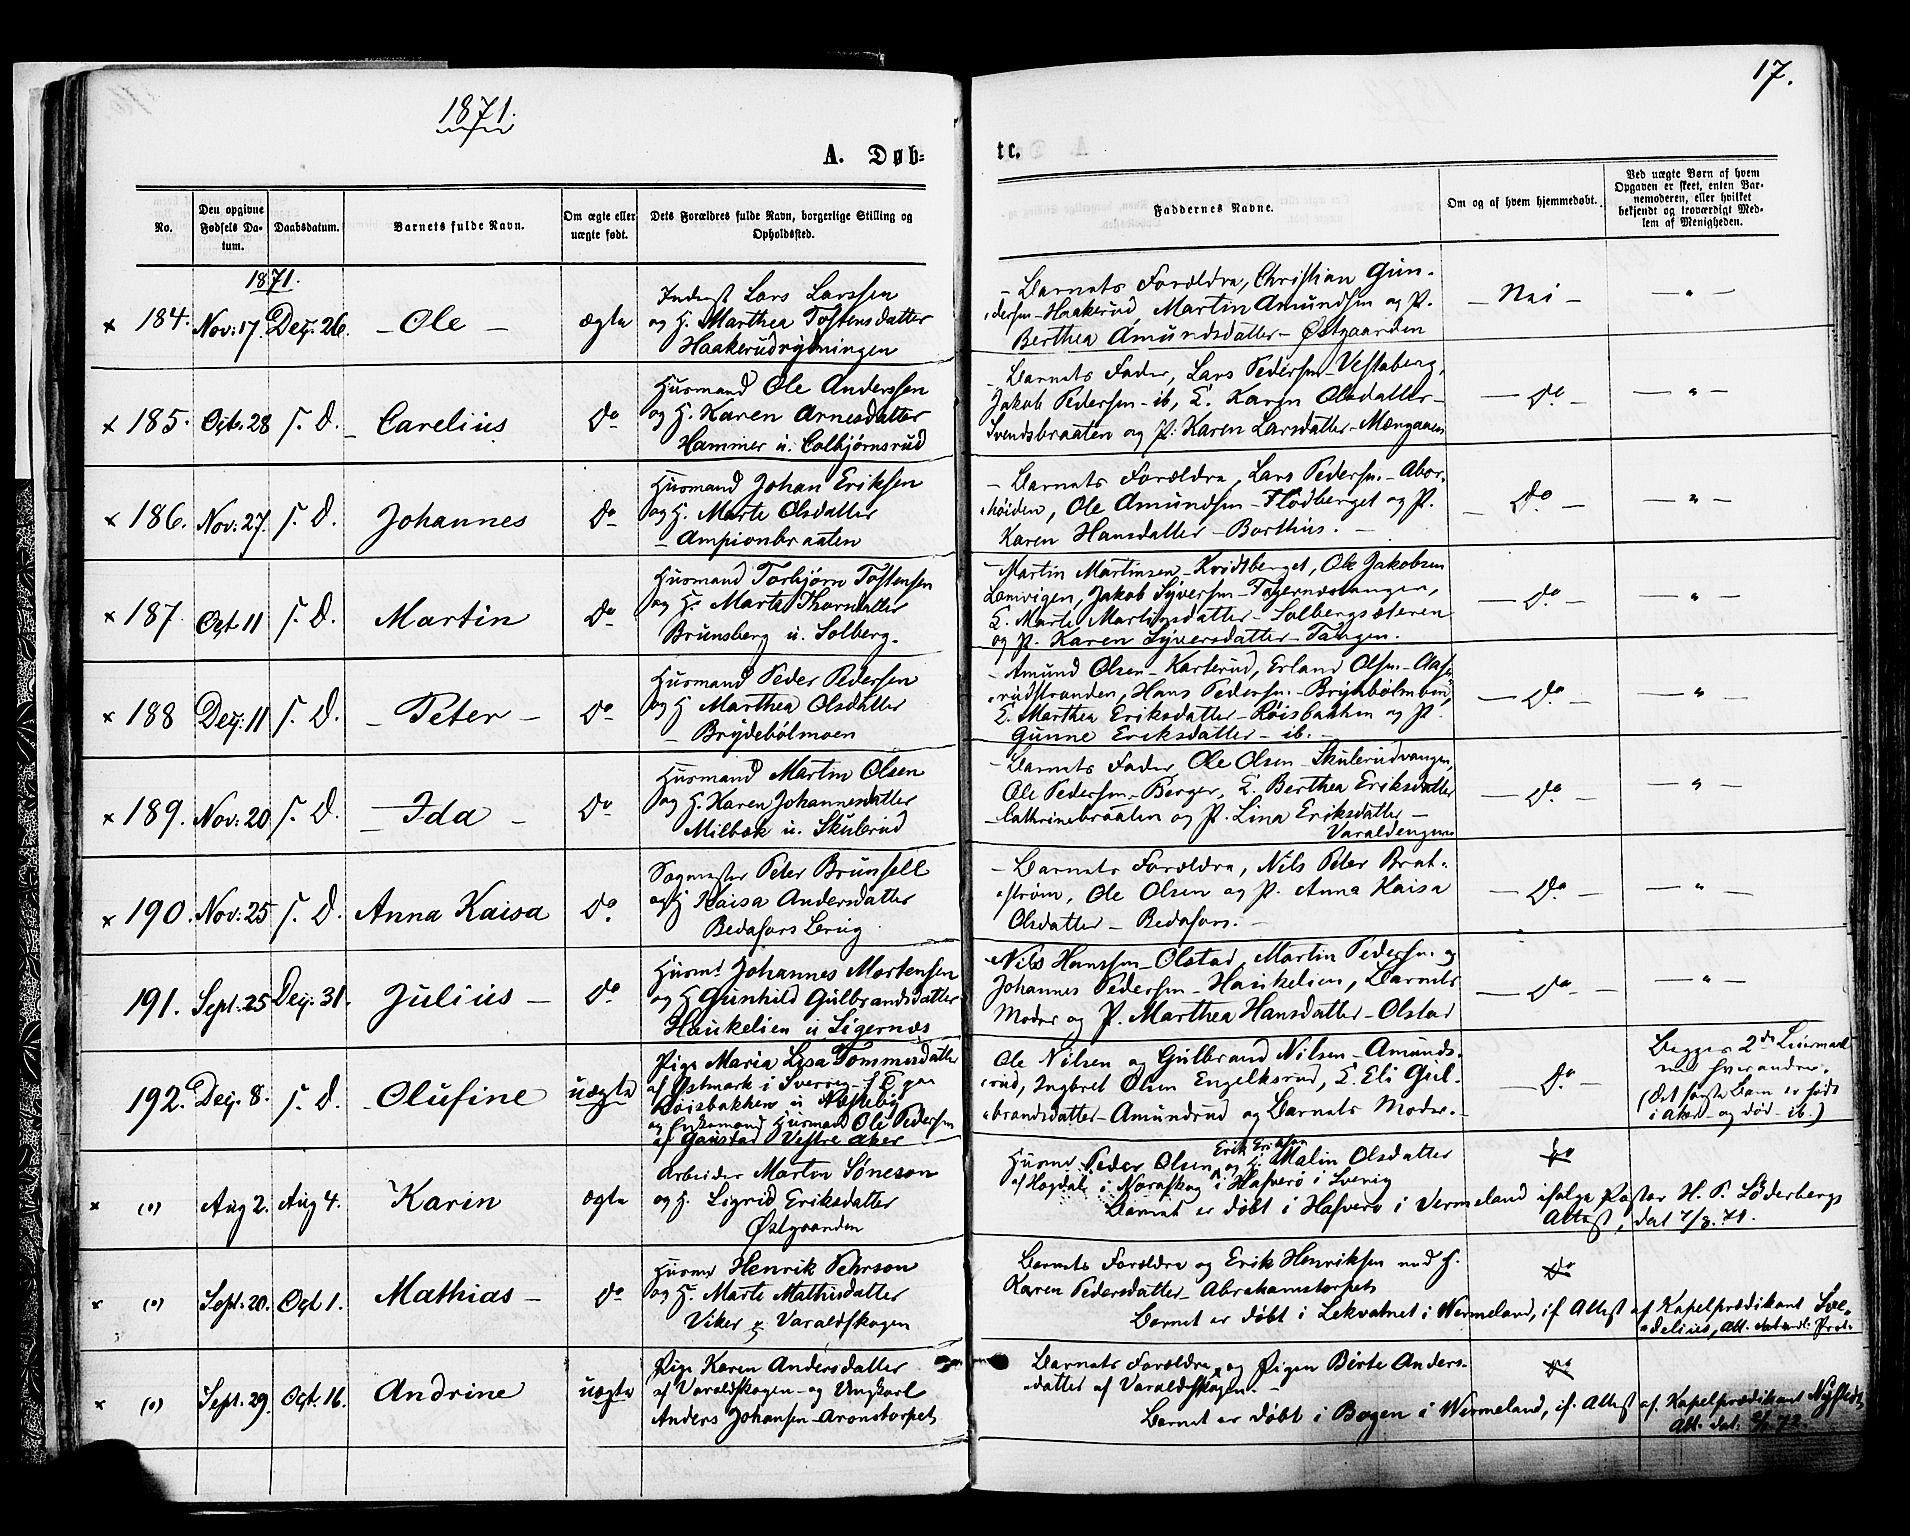 1871.
17.
A. Døb-
te.
No.
Den opgivne Fødsels Da-tum.
Daabsdatum.
Barnets fulde Navn.
Om ægte eller uægte født.
Dets Forældres fulde Navn, borgerlige Stilling og Opholdssted.
Faddernes Navne.
Om og af hvem hjemmedøbt.
Ved uægte Børn af hvem Opgaven er skeet, enten Bar-nemoderen, eller hvilket bekjendt og troværdigt Med-lem af Menigheden.
1871.
× 184. Nov: 17. Dez. 26. – Ole – ægte
Inderst Lars Larssen
og H. Marthea Tostensdatter
Haakerudrydningen
– Barnets Forældre, Christian Gun-
dersen - Haakerud, Martin Amundsen og P.
Berthea Amundsdatter - Østgaarden
– Nei – – " –
× 185. Oct. 28 s. D. – Carelius do
Husmand Ole Anderssen
og H. Karen Arnesdatter
Hammer u. Colbjørnsrud
– Barnets Fader, Lars Pedersen - Vestaberg,
Jakob Pedersen - ib, E. Karen Olsdatter -
Svendsbraaten og P. Karen Larsdatter - Mængaaen
– do – – " –
× 186. Nov: 27. s. D. Johannes do
Husmand Johan Eriksen
og H. Marte Olsdatter
– Ampionbraaten
– Barnets Forældre, Lars Pedersen - Abor-
høiden, Ole Amundsen - Flodberget og P.
Karen Hansdatter - Borthus. –
– do – – " –
× 187. Oct. 11 s. D. Martin do
Husmand Torbjørn Tostensen
og H. Marte Thorsdatter
Brunsberg u. Solberg.
– Martin Martinsen - Kvidtberget, Ole Jakobsen
Lemvigen, Jakob Syversen - Fagernæstangen,
E. Marte Martinsdatter - Solbergsæteren
og P. Karen Syversdatter - Tangen.
– do – – " –
× 188 Dez: 11 s. D. – Peter – do
Husmand Peder Pedersen
og H. Marthea Olsdatter
– Brydebølmoen
– Amund Olsen - Karterud, Erland Olsen - Aase-
rudstranden, Hans Pedersen - Brydebølmoen,
E. Marthea Eriksdatter - Røisbakken og P.
Gunne Eriksdatter - ib. –
– do – – " –
× 189. Nov: 20 s. D. – Ida – do
Husmand Martin Olsen
og H. Karen Johannesdatter
Milbæk u. Skulerud
– Barnets Fader, Ole Olsen - Skulerudvangen,
Ole Pedersen - Berger, E. Berthea Eriksdatter
Cathrinebraaten og P. Lina Eriksdatter –
Varaldengene
– do – – " –
× 190. Nov: 25 s. D. Anna Kaisa do
Sagmester Peter Brunsell
og H Kaisa Andersdatter
Bedafors Brug
– Barnets Forældre, Nils Peter Brat-
strøm, Ole Olsen og P. Anna Kaisa
Olsdatter - Bedafors. –
– do – – " –
191. Sept. 25 Dez: 31. Julius – do
Husmd Johannes Mortensen
og H Gunhild Gulbrandsdatter
Haukelien u Digernæs
Nils Hanssen - Olstad, Martin Pedersen og
Johannes Pedersen - Haukelien, Barnets
Moder og P. Marthea Hansdatter - Olstad
– do – – " –
192. Dez. 8. s. D. – Olufine uægte
Pige Maria Lysa Tommesdatter
af Østmark i Sverrig - f. E paa
Røisbakken u Næsteby
og Enkemand Husmand Ole Pedersen
af Gaustad Vestre Aker
Ole Nilsen og Gulbrand Nilsen - Amunds-
rud, Ingbret Olsen Engelksrud, E. Eli Gul-
brandsdatter - Amundrud og Barnets Moder. –
– do –
Begges 2det Leiermaal
med hverandre.
(Det første Barn er født
i Aker - og død - ib.)
× (o) Aug 2. Aug 4. Karin ægte
Arbeider Martin Sønesen
og H. Sigrid Eriksdatter
Østgaarden
Erik Erikson
Husmd Peder Olsen og H. Malin Olsdatter
af Hogdal i Norafskog i Hafverö i Sverig
Barnet er døbt i Hafverö i Vermeland ifølge Pastor H. P. Söderbergs
Attest, dat 7/8. 71.
do
× (o) Sept. 20. Oct 1. Mathias – do
Husmd Henrik Pehrson
og H. Marte Mathisdatter
Viker Varaldskogen
Barnets Forældre og Erik Henriksen med H.
Karen Pedersdatter - Abrahamstorpet
Barnet er døbt i Lekvatnet i Wermeland, if. Attest af Kapelprædikant Sve-
delius, Att.
do
× (o) Sept. 29. Oct. 16. Andrine uægte
Pige Karen Andersdatter
af Varaldskogen - og Ungkarl
Anders Johansen - Aronstorpet
Barnets Forældre og Pigen Birte Anders-
datter af Varaldskogen. –
Barnet er døbt i Bogen i Wermeland, if. Attest af Kapelprædikant Nystedt
Att. dat. 72.
do